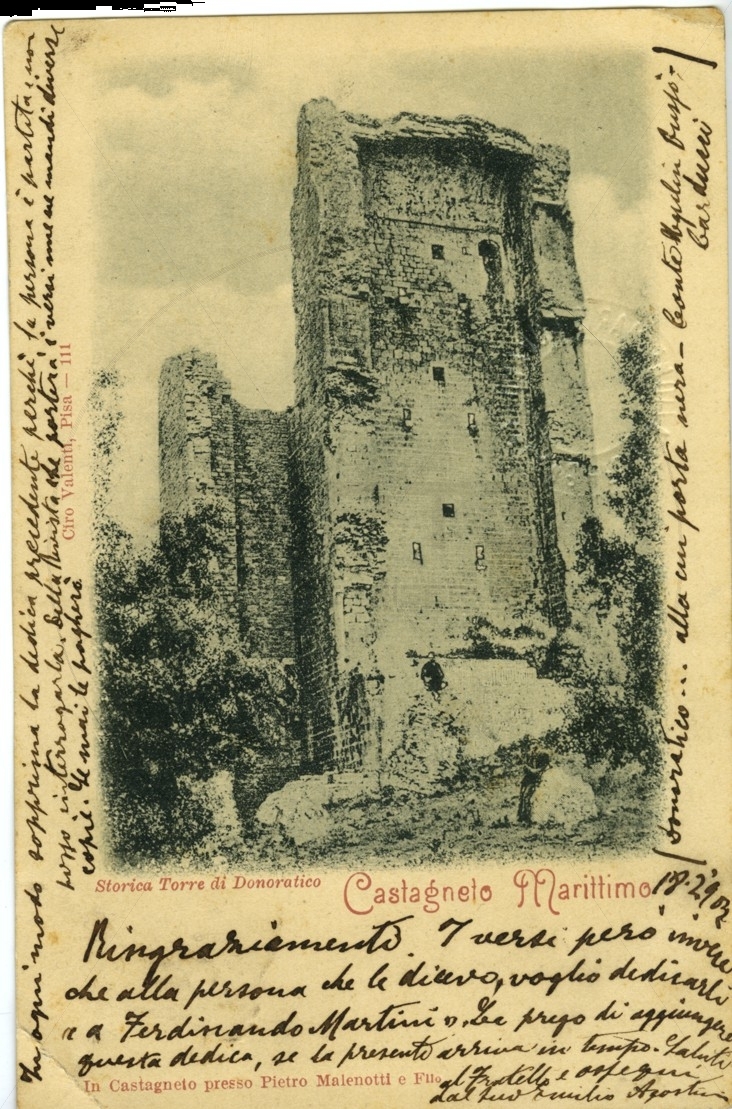 Storica Torre di Donoratico
Castagneto Marittimo
18.2.902
Ringraziamenti. I versi però invece
che alla persona che le dicevo, voglio dedicarli
"a Ferdinando Martini". La prego di aggiungere
questa dedica, se la presente arriva in tempo. Saluti
al Fratello e ossequi
dal suo Emilio Agostini
In Castagneto presso Pietro Malenotti e Fllo
In ogni modo sopprima la dedica precedente perchè la persona è partita e non
posso interrogarla. Della Rivista che porterà i versi me ne mandi diverse
copie. Se mai le pagherò
Ciro Valenti, Pisa — 111
(Donoratico... alla cui porta nera – Conte Ugolin
Carducci)